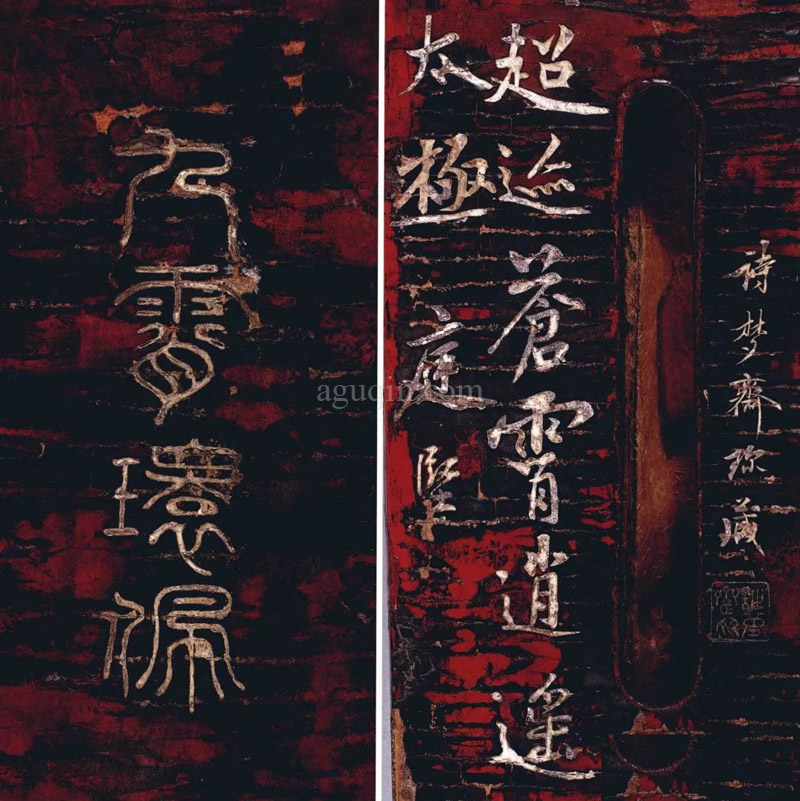 九霄環佩
詩梦齋珎藏
超迹蒼霄逍遥
太極庭堅
aguqin.com